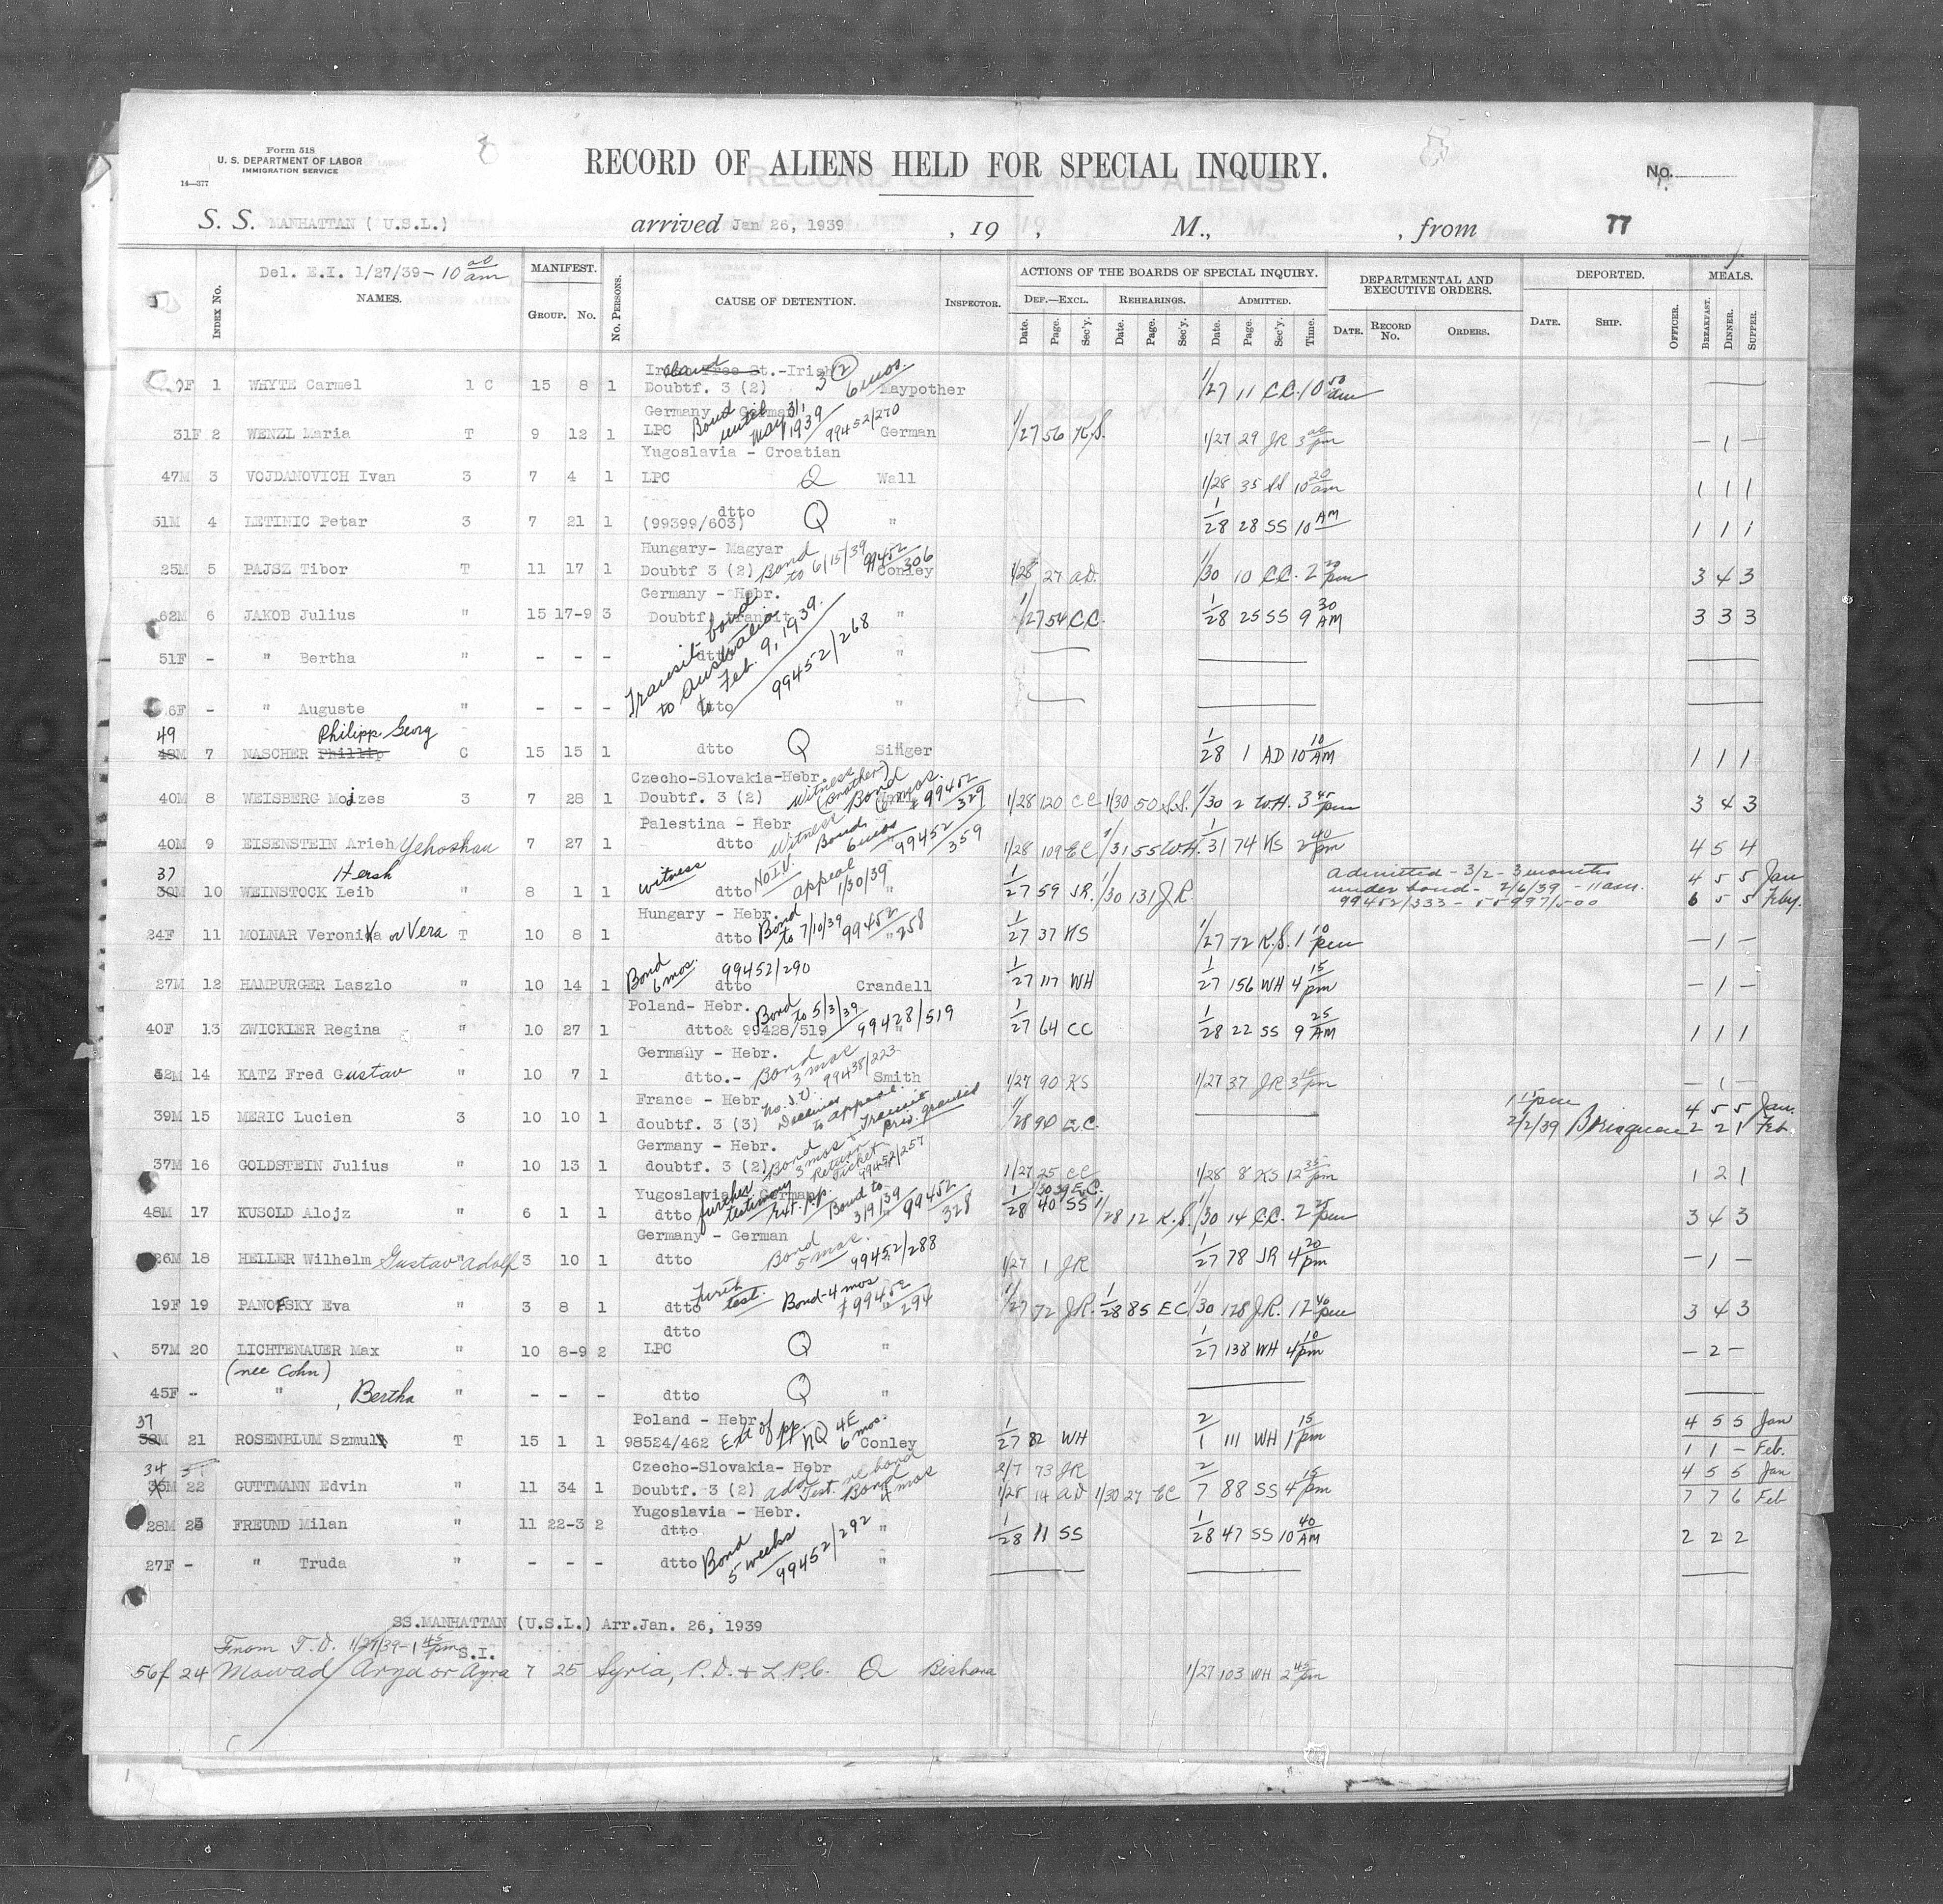 Form 518
U. S. DEPARTMENT OF LABOR
IMMIGRATION SERVICE
14—377
RECORD OF ALIENS HELD FOR SPECIAL INQUIRY.
No.
S. S. MANHATTAN ( U.S.L.) arrived Jan 26, 1939 , 19 , M., , from 77
Del. E.I. 1/27/39 - 10 00 am
NAMES.
INDEX No.
MANIFEST.
GROUP. No.
No. PERSONS.
CAUSE OF DETENTION.
INSPECTOR.
ACTIONS OF THE BOARDS OF SPECIAL INQUIRY.
DEF.—EXCL. REHEARINGS. ADMITTED.
Date. Page. Sec'y. Date. Page. Sec'y. Date. Page. Sec'y. Time.
DEPARTMENTAL AND EXECUTIVE ORDERS.
DATE. RECORD No. ORDERS.
DEPORTED.
DATE. SHIP. OFFICER.
MEALS.
BREAKFAST. DINNER. SUPPER.
St.-Irish
1 WHYTE Carmel 1 C 15 8 1 Doubtf. 3 (2) 3 (2) 6 mos. Maypother 1/27 11 CC. 10 50 am
Germany - German
31F 2 WENZL Maria T 9 12 1 LPC Bond until May 31, 1939 99452/270 German 1/27 56 K.S. 1/27 29 JR 3 00 pm — 1 —
Yugoslavia - Croatian
47M 3 VOJDANOVICH Ivan 3 7 4 1 LPC Q Wall 1/28 35 SS 10 20 am 1 1 1
51M 4 LETINIC Petar 3 7 21 1 dtto (99399/603) Q " 1/28 28 SS 10 AM 1 1 1
Hungary- Magyar
25M 5 PAJSZ Tibor T 11 17 1 Doubtf 3 (2) Bond to 6/15/39 99452/306 Conley 1/28 27 A.D. 1/30 10 CC. 2 20 pm 3 4 3
Germany - Hebr.
62M 6 JAKOB Julius " 15 17-9 3 Doubtf. transit " 1/27 54 C.C. 1/28 25 SS 9 30 AM 3 3 3
51F - " Bertha " - - - dtto "
Transit bond to Australia to Feb. 9, 1939. 99452/268
6F - " Auguste " - - - dtto "
49 Philipp Georg
48M 7 NASCHER Phillip C 15 15 1 dtto Q Singer 1/28 1 AD 10 10 AM 1 1 1
Czecho-Slovakia-Hebr
40M 8 WEISBERG Moizes 3 7 28 1 Doubtf. 3 (2) Witness (brother) Bond 6 mos. 99452/329 1/28 120 CC 1/30 50 S.S. 1/30 2 W.H. 3 45 pm 3 4 3
Palestina - Hebr
40M 9 EISENSTEIN Arieh Yehoshau 7 27 1 dtto Witness Bond 6 mos 99452/359 1/28 109 EC 1/31 55 W.H. 1/31 74 KS 2 40 pm 4 5 4
37 Hersh
39M 10 WEINSTOCK Leib " 8 1 1 witness dtto NO I.V. appeal 1/30/39 " 1/27 59 JR. 1/30 131 J.R. Admitted - 3/2 - 3 months under bond - 2/6/39 - 11 am. 99452/333 - 55997/500 4 5 5 Jan 6 5 5 Feby.
Hungary - Hebr.
24F 11 MOLNAR Veronika or Vera T 10 8 1 dtto Bond to 7/10/39 99452/258 " 1/27 37 KS 1/27 72 K.S. 1 10 pm — 1 —
27M 12 HAMBURGER Laszlo " 10 14 1 Bond 6 mos. 99452/290 dtto Crandall 1/27 117 WH 1/27 156 WH 4 15 pm — 1 —
Poland- Hebr.
40F 13 ZWICKLER Regina " 10 27 1 dtto& 99428/519 Bond to 5/3/39 99428/519 " 1/27 64 CC 1/28 22 SS 9 25 AM 1 1 1
Germany - Hebr.
52M 14 KATZ Fred Gustav " 10 7 1 dtto.- Bond 3 mos 99438/223 Smith 1/27 90 KS 1/27 37 JR 3 10 pm — 1 —
France - Hebr
39M 15 MERIC Lucien 3 10 10 1 doubtf. 3 (3) No. I.V. Declines to appeal. Transit priv. granted 1/28 90 E.C. 1 15 pm 2/2/39 Borinquen 4 5 5 Jan. 2 2 1 Feb
Germany - Hebr.
37M 16 GOLDSTEIN Julius " 10 13 1 doubtf. 3 (2) Bond 3 mos + Return Ticket 99452/257 1/27 25 CC 1/28 8 KS 12 35 pm 1 2 1
Yugoslavia- German
48M 17 KUSOLD Alojz " 6 1 1 dtto further testimony Ext. p.p. Bond to 3/9/39 99452/328 1/28 40 SS 1/30 39 E.C. 1/28 12 K.S. 1/30 14 C.C. 2 25 pm 3 4 3
Germany - German
26M 18 HELLER Wilhelm Gustav Adolf " 3 10 1 dtto Bond 5 mos. 99452/288 1/27 1 JR 1/27 78 JR 4 20 pm — 1 —
19F 19 PANOFSKY Eva " 3 8 1 dtto furth test. Bond-4 mos 99452/294 " 1/27 72 J.R. 1/28 85 EC 1/30 128 J.R. 12 40 pm 3 4 3
dtto
57M 20 LICHTENAUER Max " 10 8-9 2 LPC Q " 1/27 138 WH 4 10 pm — 2 —
(nee Cohn)
45F - " , Bertha " - - - dtto Q "
Poland - Hebr
37
38M 21 ROSENBLUM Szmul T 15 1 1 98524/462 Ext of pp. NQ 4E 6 mos. Conley 1/27 82 WH 2/1 111 WH 1 15 pm 4 5 5 Jan 1 1 - Feb.
Czecho-Slovakia- Hebr
34
35M 22 GUTTMANN Edvin " 11 34 1 Doubtf. 3 (2) add Test. re bond Bond 4 mos 2/7 73 JR 1/28 14 AD 1/30 27 EC 2/7 88 SS 4 15 pm 4 5 5 Jan 7 7 6 Feb
Yugoslavia - Hebr.
28M 23 FREUND Milan " 11 22-3 2 dtto " 1/28 11 SS 1/28 47 SS 10 40 AM 2 2 2
27F - " Truda " - - - dtto Bond 5 weeks 99452/292 "
SS.MANHATTAN (U.S.L.) Arr.Jan. 26, 1939
From T.D. 1/27/39 - 1 45 pm S.I.
56f 24 Mowad Arya or Ayra 7 25 Syria, P.D. & L.P.C. Q Bishara 1/27 103 WH 2 45 pm